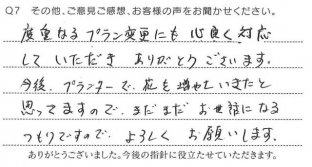 Q7 その他、ご意見ご感想、お客様の声をお聞かせください。
度重なるプラン変更にも 心良く対応
して いただき ありがとうございます。
今後、プランターで、花を増やしいきたと
思ってますので、まだまだ お世話になる
つもりですので、よろしく お願いします。
ありがとうございました。今後の指針に役立たせていただきます。